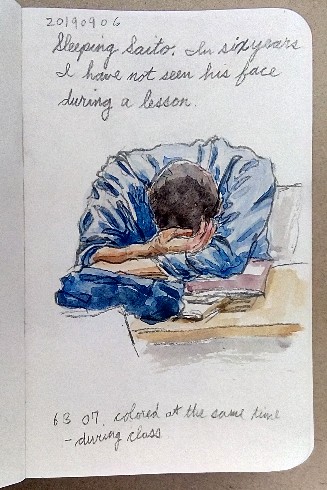 20190906
Sleeping Saito. In six years
I have not seen his face
during a lesson.
63 07. colored at the same time
- during class